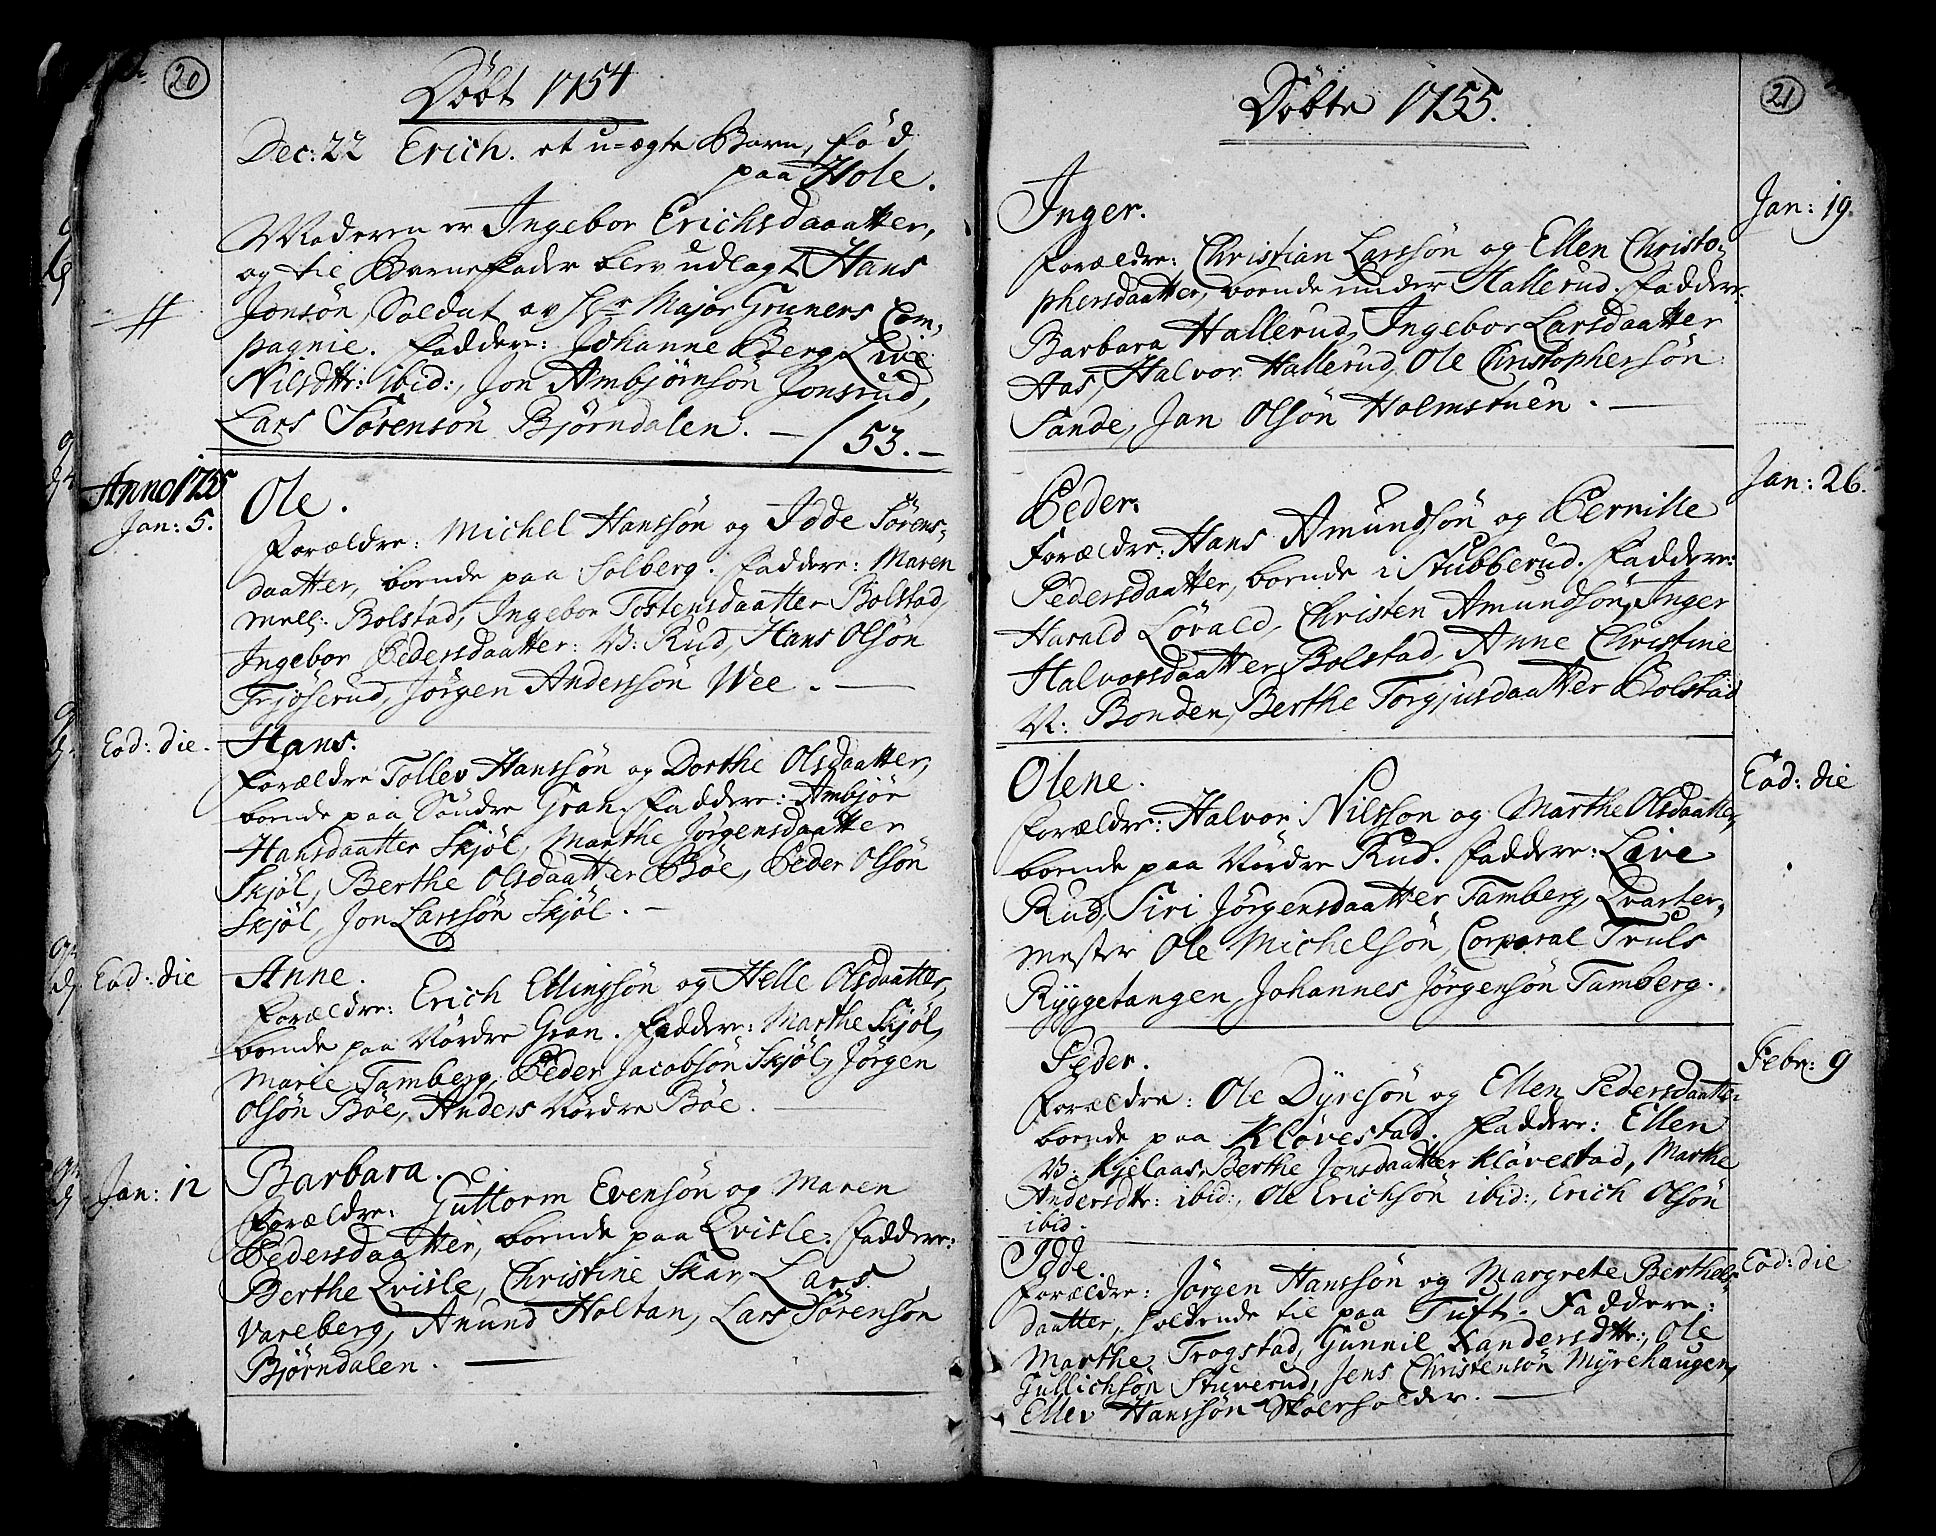 20
Döbt 1754
Dec: 22 Erich. et u-ægte Barn, fød
paa Hole.
Moderen er Ingebor Erichsdaaatter,
og til Barnefader blev udlagt Hans
Jonsön, Soldat av Hr Major Gruners Com-
#
pagnie. Faddere: Johanne Berg, Live
Nilsdttr: ibid:, Jon Ambjörnsön Jonsrud,
Lars Sörensön Björndalen. — / 53. —
Anno 1755
Jan: 5.
Ole.
Forældre: Michel Hanssön og Idde Sörens-
daatter, boende paa Solberg. Faddere: Maren
mell: Bolstad, Ingebor Tostensdaatter Bolstad,
Ingebor Pedersdaatter: V: Rud, Hans Olsön
Frjöserud, Jörgen Anderssön Wee. —
Eod: die.
Hans.
Forældre Tollev Hanssön og Dorthe Olsdaatter,
boende paa Söndre Gran. Faddere: Ambjör
Hansdaatter Skjöl, Marthe Jörgensdaatter
Skjöl, Berthe Olsdaatter Böe, Peder Olsön
Skjöl, Jon Larssön Skjöl. —
Eod: die
Anne.
Forældre: Erich Ellingsön og Helle Olsdaatter,
boende paa Nördre Gran. Faddere: Marthe Skjöl,
Marie Tamberg, Peder Jacobsön Skjöl, Jörgen
Olsön Böe, Anders Nördre Böe. —
Jan: 12
Barbara.
Forældre: Guttorm Evensön og Maren
Pedersdaatter, boende paa Qvisle. Faddere:
Berthe Qvisle, Christine Skar, Lars
Vareberg, Anund Holtan, Lars Sörensön
Björndalen. —
21
Döbte 1755.
Jan: 19.
Inger.
Forældre: Christian Larssön og Ellen Christo-
phersdaatter, boende under Hallerud. Faddere:
Barbara Hallerud, Ingebor Larsdaatter
Aas, Halvor Hallerud, Ole Christophersön
Sande, Jan Olsön Holmstuen. —
Jan: 26.
Peder.
Forældre: Hans Amundsön og Pernille
Pedersdaatter, boende i Stubberud. Faddere:
Harald Lövald, Christen Amundsön, Inger
Halvorsdaatter Bolstad, Anne Christine
V: Bonden, Berthe Torgjusdaatter Bolstad
Eod: die
Olene.
Forældre: Halvor Nilsson og Marthe Olsdaatter,
boende paa Nördre Rud. Faddere: Live
Rud, Siri Jörgensdaatter Tamberg, Qvarter-
mester Ole Michelsön, Corporal Truls
Ryggetangen, Johannes Jörgensön Tamberg.
Febr: 9
Peder.
Forældre: Ole Dyresön og Ellen Pedersdaatter
boende paa Klövestad. Faddere: Ellen
V: Kjelaas, Berthe Jonsdaatter Klövestad, Marthe
Andersdtr: ibid:, Ole Erichsön ibid:, Erich Olsön
ibid.
Eod: die
Idde.
Forældre: Jörgen Hanssön og Margrete Berthels-
daatter, holdende til paa Tuft. Faddere:
Marthe Trogstad, Gunnil Xandersdttr:, Ole
Gullichsön Stuverud, Jens Christensön Myrehaugen,
Ellev Hanssön Skoleholder. —